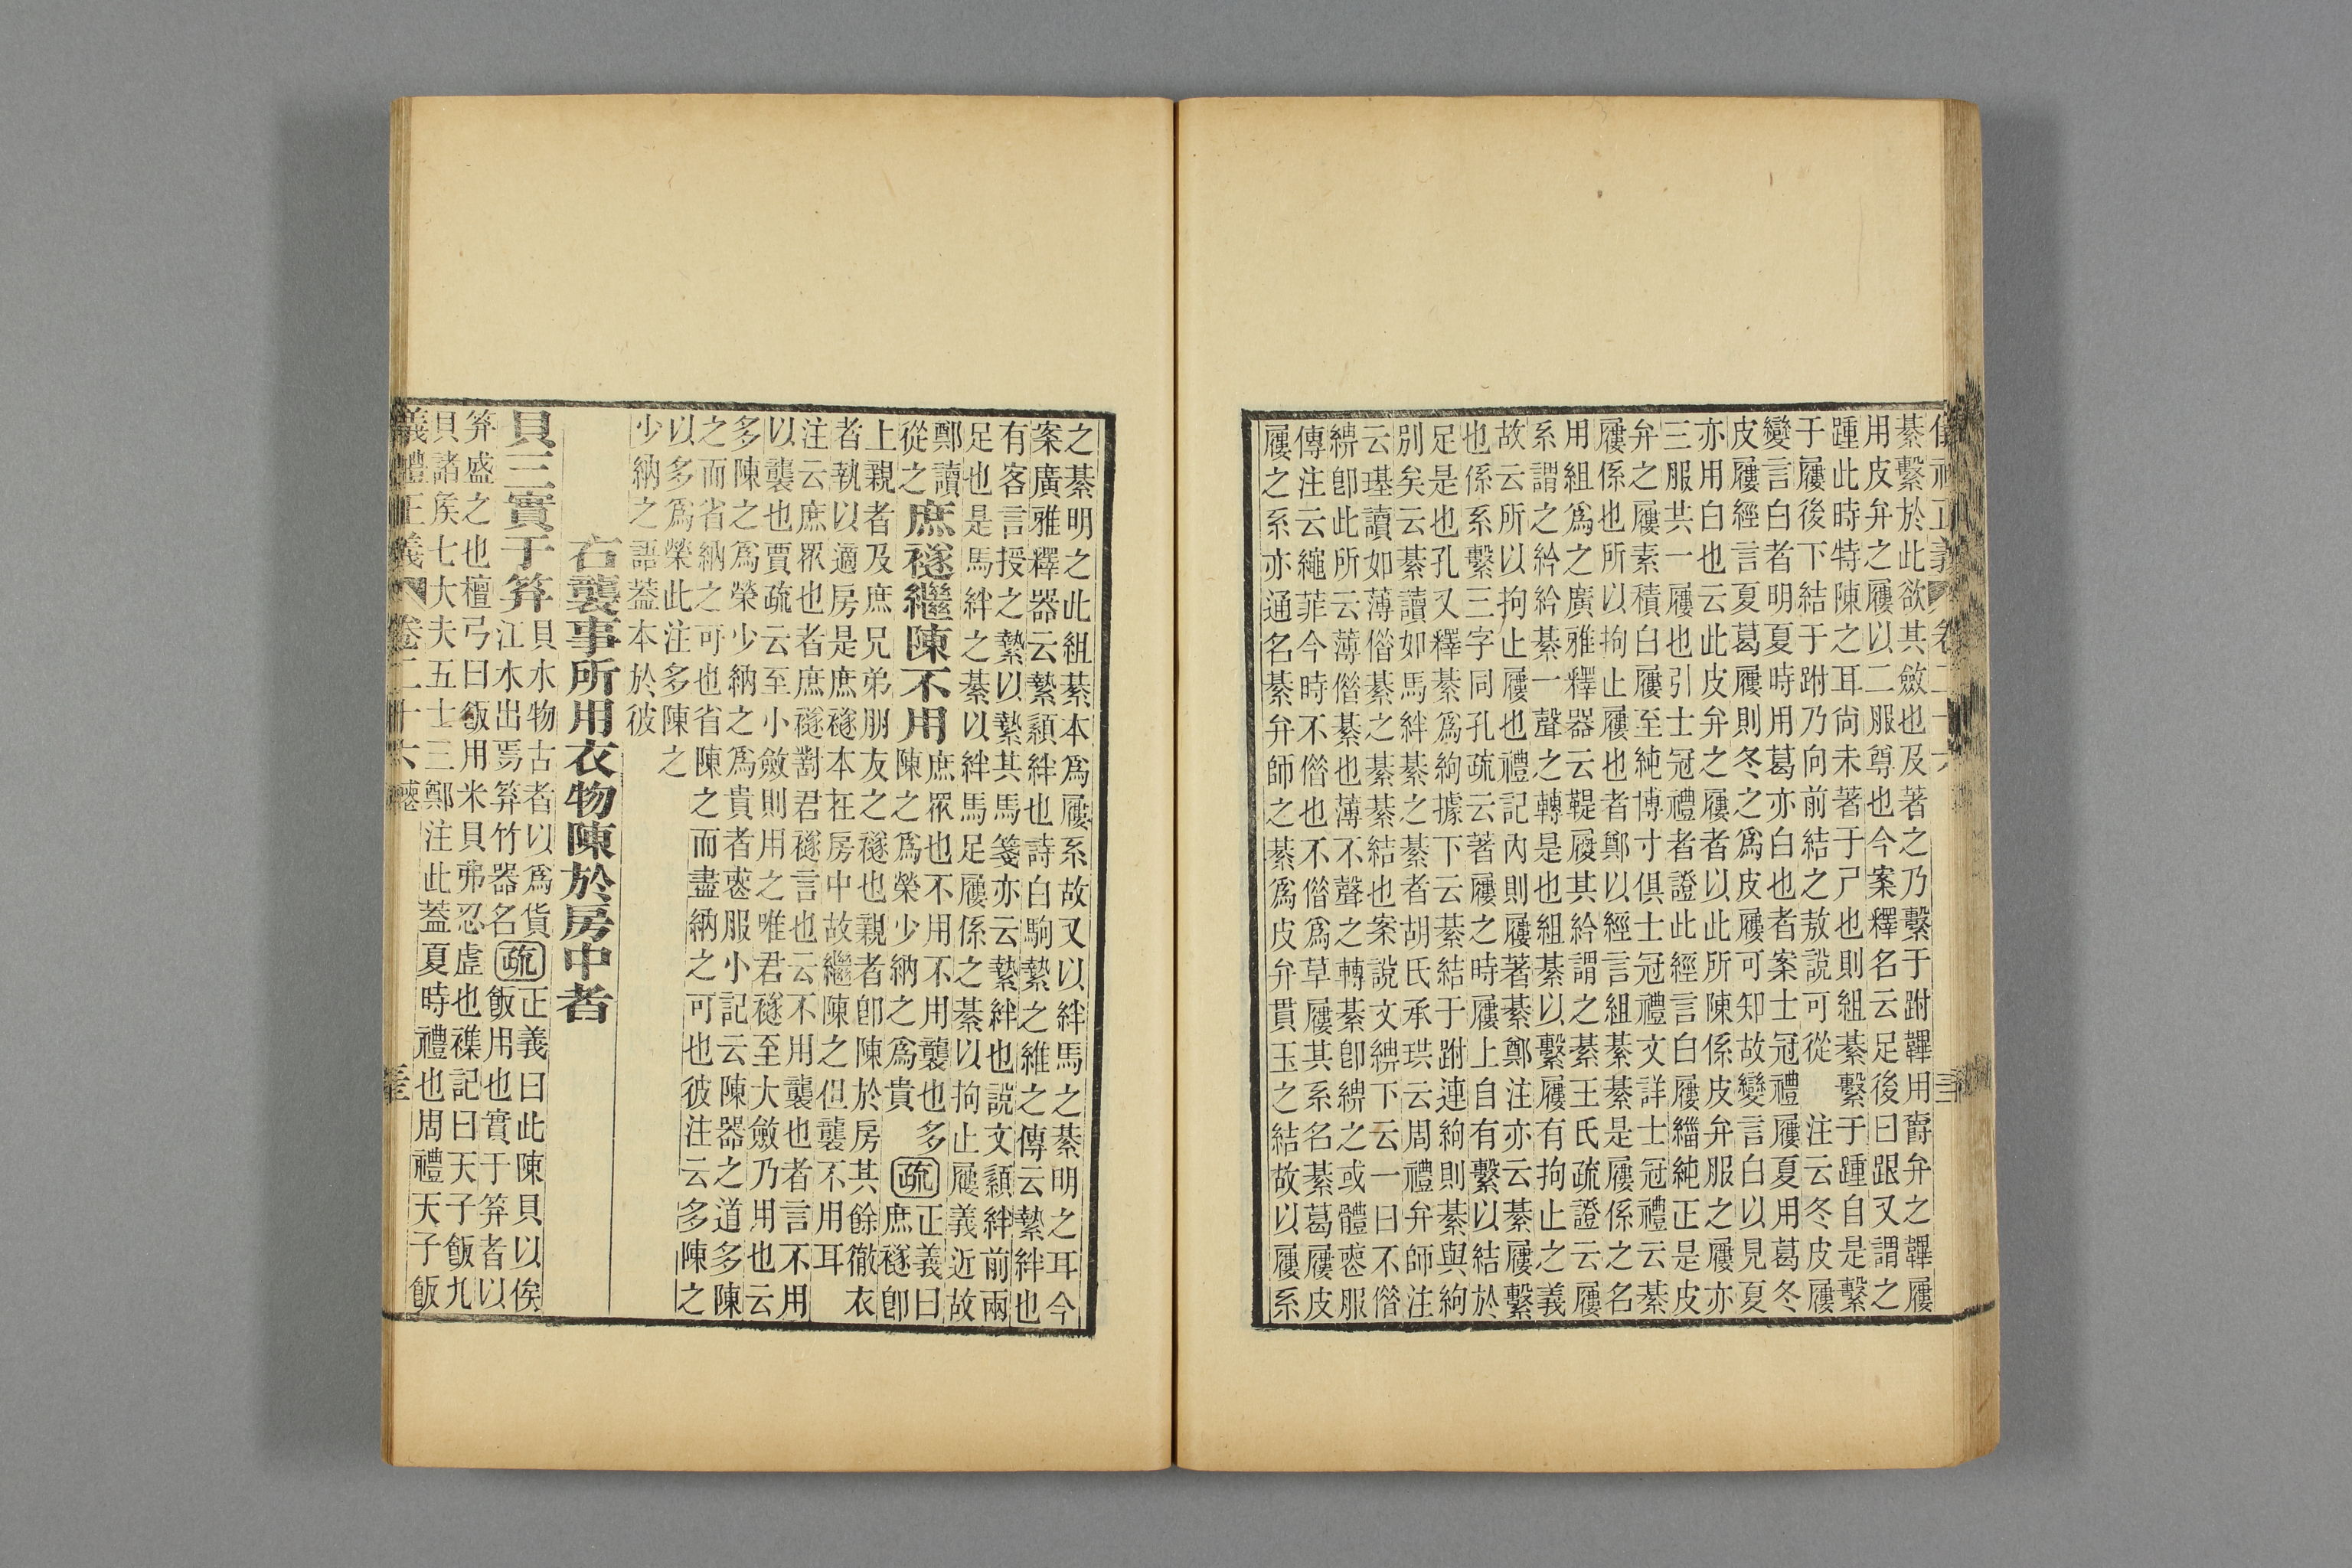 儀禮正義 卷二十六
綦繫於此欲其斂也及著之乃繫于跗韠用爵弁之韠屨
用皮弁之屨以二服尊也今案釋名云足後曰跟又謂之
踵此時特陳之耳尙未著于尸也則組綦繫于踵自是繫
于屨後下結于跗乃向前結之敖說可從 注云冬皮屨
變言白者明夏時用葛亦白也者案士冠禮屨夏用葛冬
皮屨經言夏葛屨則冬之爲皮屨可知故變言白以見夏
亦用白也云此皮弁之屨者以此所陳係皮弁服之屨亦
三服共一屨也引士冠禮者證此經言白屨緇純正是皮
弁之屨素積白屨至純博寸俱士冠禮文詳士冠禮云綦
屨係也所以拘止屨也者鄭以經言組綦綦是屨係之名
用組爲之廣雅釋器云鞮屨其紟謂之綦王氏疏證云屨
系謂之紟紟綦一聲之轉是也組綦以繫屨有拘止之義
故云所以拘止屨也禮記內則屨著綦鄭注亦云綦屨繫
也係系繫三字同孔疏云著屨之時屨上自有繫以結於
足是也孔又釋綦爲絇據下云綦結于跗連絇則綦與絇
別矣云綦讀如馬絆綦之綦者胡氏承珙云周禮弁師注
云璂讀如薄借綦之綦綦結也案說文綥下云一曰不借
綥卽此所云薄借綦也薄不聲之轉綦卽綥之或體喪服
傳注云繩菲今時不借也不借爲草屨其系名綦葛屨皮
屨之系亦通名綦弁師之綦爲皮弁貫玉之結故以屨系
之綦明之此組綦本爲屨系故又以絆馬之綦明之耳今
案廣雅釋器云縶纇絆也詩白駒縶之維之傳云縶絆也
有客言授之縶以縶其馬箋亦云縶絆也說文纇絆前兩
足也是馬絆之綦以絆馬足屨係之綦以拘止屨義近故
鄭讀從之庶襚繼陳不用庶眾也不用不用襲也多陳之爲榮少納之爲貴疏正義曰庶襚卽
上親者及庶兄弟朋友之襚也親者卽陳於房其餘徹衣
者執以適房是庶襚本在房中故繼陳之但襲不用耳
注云庶眾也者庶襚對君襚言也云不用襲也者言不用
以襲也賈疏云至小斂則用之唯君襚至大斂乃用也云
多陳之爲榮少納之爲貴者喪服小記云陳器之道多陳
之而省納之可也省陳之而盡納之可也彼注云多陳之
以多爲榮此注多陳之
少納之語蓋本於彼
右襲事所用衣物陳於房中者
貝三實于笲貝水物古者以爲貨江水出焉笲竹器名疏正義曰此陳貝以俟飯用也實于笲者以
笲盛之也檀弓曰飯用米貝弗忍虛也襍記曰天子飯九
貝諸矦七大夫五士三鄭注此蓋夏時禮也周禮天子飯
義禮正義 卷二十六 喪